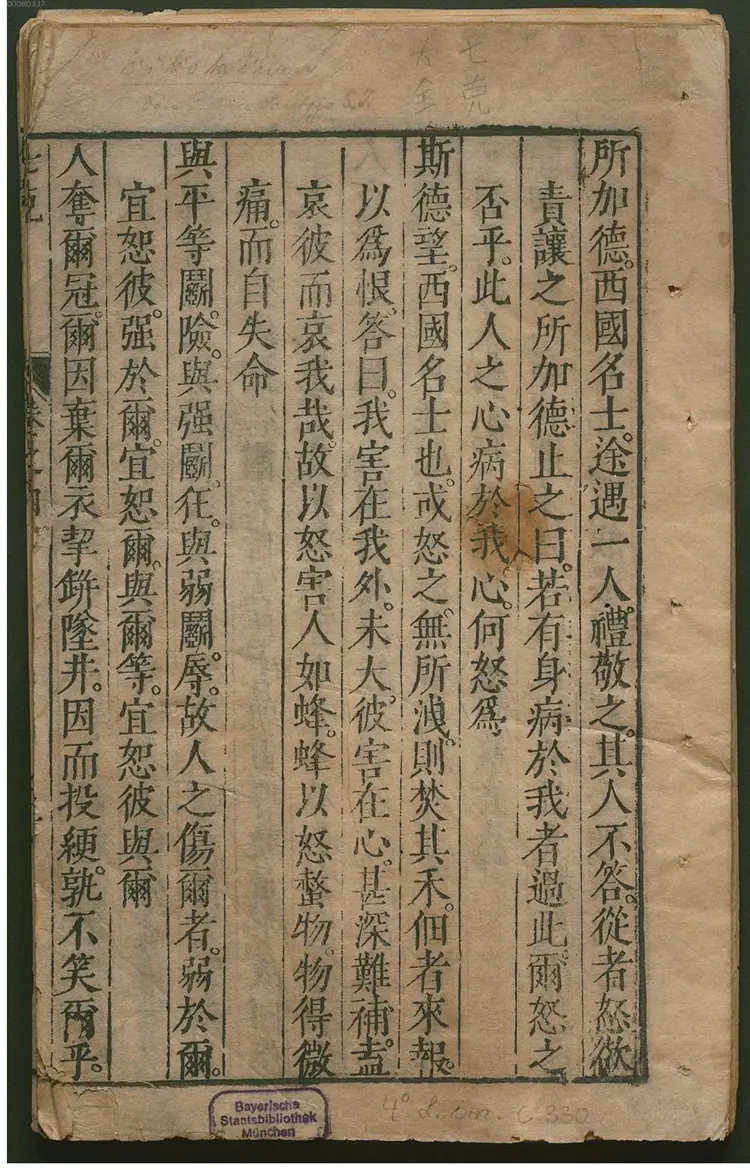 00080337
七克
大全
所加德。西國名士。途遇一人。禮敬之。其人不答。從者怒欲
責讓之所加德止之曰。若有身病於我者過此。爾怒之
否乎。此人之心病於我心。何怒爲
斯德望。西國名士也。或怒之。無所洩。則焚其禾。佃者來報。
以爲恨。答曰。我害在我外。未大。彼害在心。甚深難補。盍
哀彼而哀我哉。故以怒害人如蜂。蜂以怒螫物。物得微
痛。而自失命
與平等鬬。險。與强鬬。狂。與弱鬬。辱。故人之傷爾者。弱於爾。
宜恕彼。强於爾。宜恕爾。與爾等。宜恕彼與爾
人奪爾冠。爾因棄爾衣挈缾墜井。因而投綆。孰不笑爾乎。
七克
卷之四
Bayerische
Staatsbibliothek
München
4° L. sin. C. 330